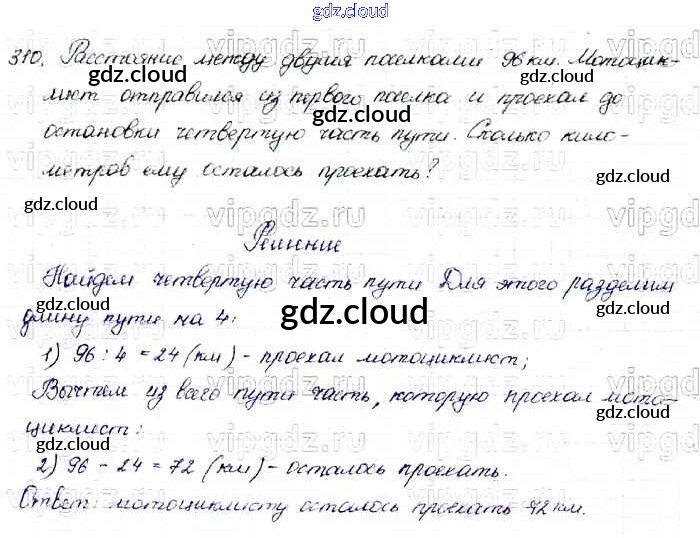 gdz.cloud
310. Расстояние между двумя поселками 96 км. Мотоцик-
лист отправился из первого поселка и проехал до
остановки четвертую часть пути. Сколько кило-
метров ему осталось проехать?
Решение
Найдем четвертую часть пути. Для этого разделим
длину пути на 4:
1) 96 : 4 = 24 (км) - проехал мотоциклист;
Вычтем из всего пути часть, которую проехал мото-
циклист:
2) 96 - 24 = 72 (км) - осталось проехать.
Ответ: мотоциклисту осталось проехать 72 км.